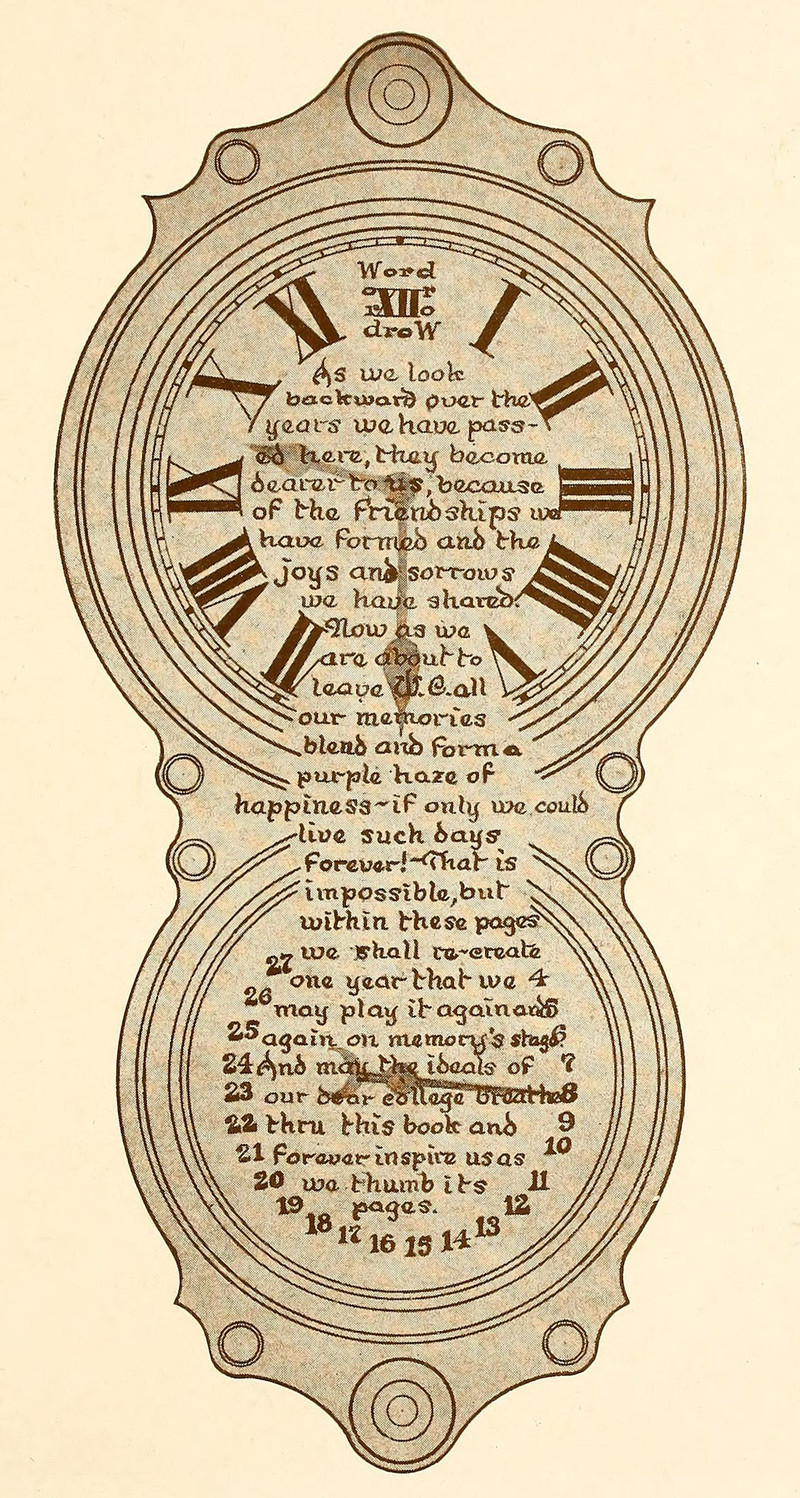 Word
XI o XII r I
r o
droW
As we look
X backward over the II
years we have pass-
ed here, they become
IX dearer to us, because III
of the friendships we
have formed and the
VIII joys and sorrows IIII
we have shared.
Now as we
VII are about to V
leave W.C. all
our memories
blend and form a
purple haze of
happiness~if only we could
live such days
forever!~That is
impossible, but
within these pages
we shall re-create
27 one year that we 4
26 may play it again and 5
25 again on memory's stage 6
24 And may the ideals of 7
23 our dear college breathe 8
22 thru this book and 9
21 forever inspire us as 10
20 we thumb its 11
19 pages. 12
18 17 16 15 14 13